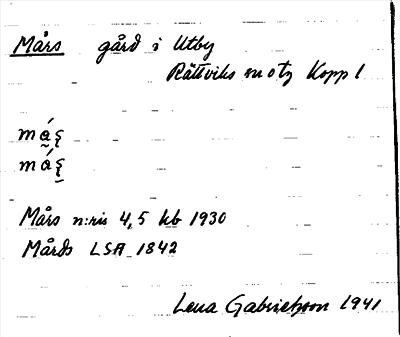 Mårs gård i Utby
Rättviks sn o tg Kopp l
Mårs n:ris 4,5 kb 1930
Mårds LSA 1842
Lena Gabrielsson 1941